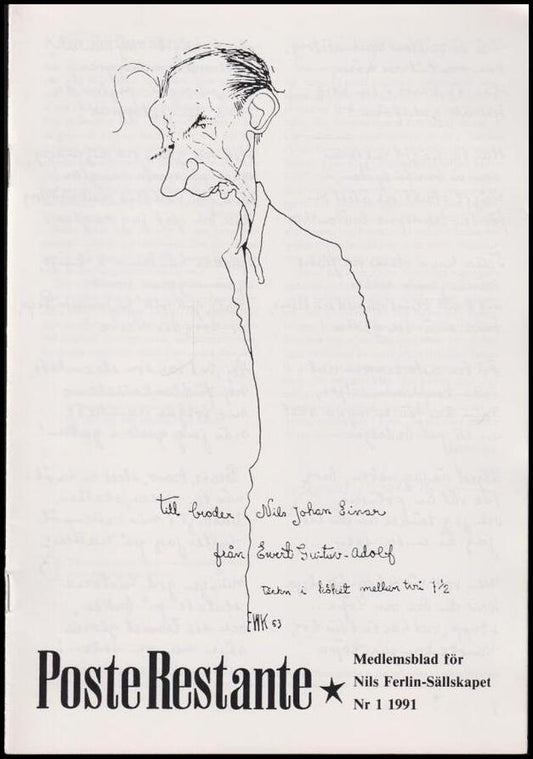 Till broder Nils Johan Einar
från Ewert Gustav-Adolf
i köket mellan två 7½
EWK 63
Poste Restante ★
Medlemsblad för
Nils Ferlin-Sällskapet
Nr 1 1991